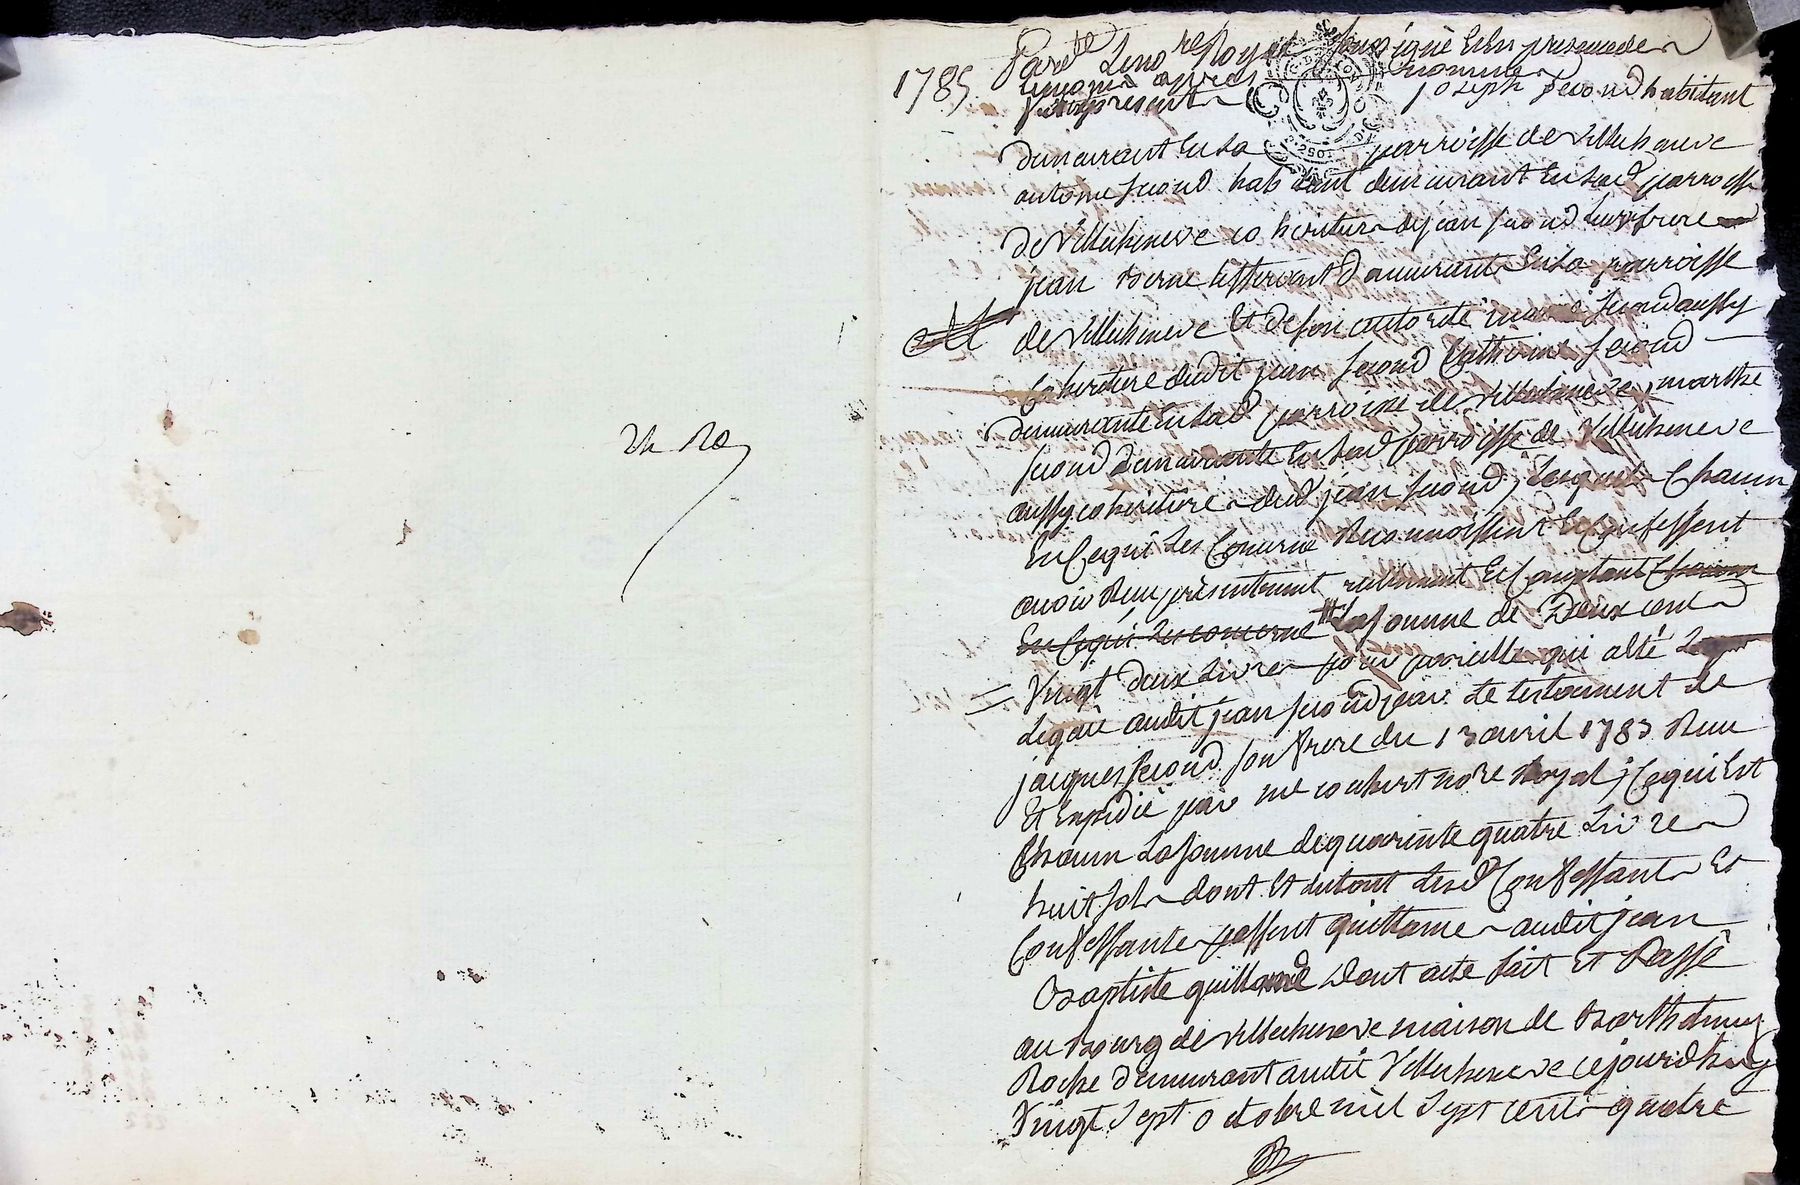 1785
Pard.t Le no.re Royal soussigné et En presence de
temoins apres nommes
fut present joseph second habitant
demeurant En la parroisse de villecheneve
antoine second habitant demeurant En lad parroisse
de villecheneve coheritier de jean second leur frere
jean demeurant En la parroisse
de villecheneve Et de son autorité second aussy
coheritiere dudit jean second Catherine second
demeurante En lad parroisse de villecheneve, marthe
second demeurante En lad parroisse de villecheneve
aussy coheritiere dud jean second, lesquels Chacun
En Ce qui Les Concerne Reconnoissent et Confessent
avoir Reçu presentement reellement Et Comptant Chacun
En Ce qui Les concerne La somme de Deux cent
Vingt deux Livres pour pareille qui a été
leguée audit jean second par Le testament de
jacques second son frere du 13 avril 1783 Reçu
Et Expedié par me no.re Royal, Ce qui Est
Chacun La somme de quarante quatre Livres
huit sols dont Et du tout Lesd Confessants Et
Confessantes passent quittance audit jean
Baptiste Dont acte fait Et Passé
au Bourg de villecheneve maison de Barthelemy
Roche demeurant audit Villecheneve cejourdhuy
Vingt sept octobre mil sept cent quatre